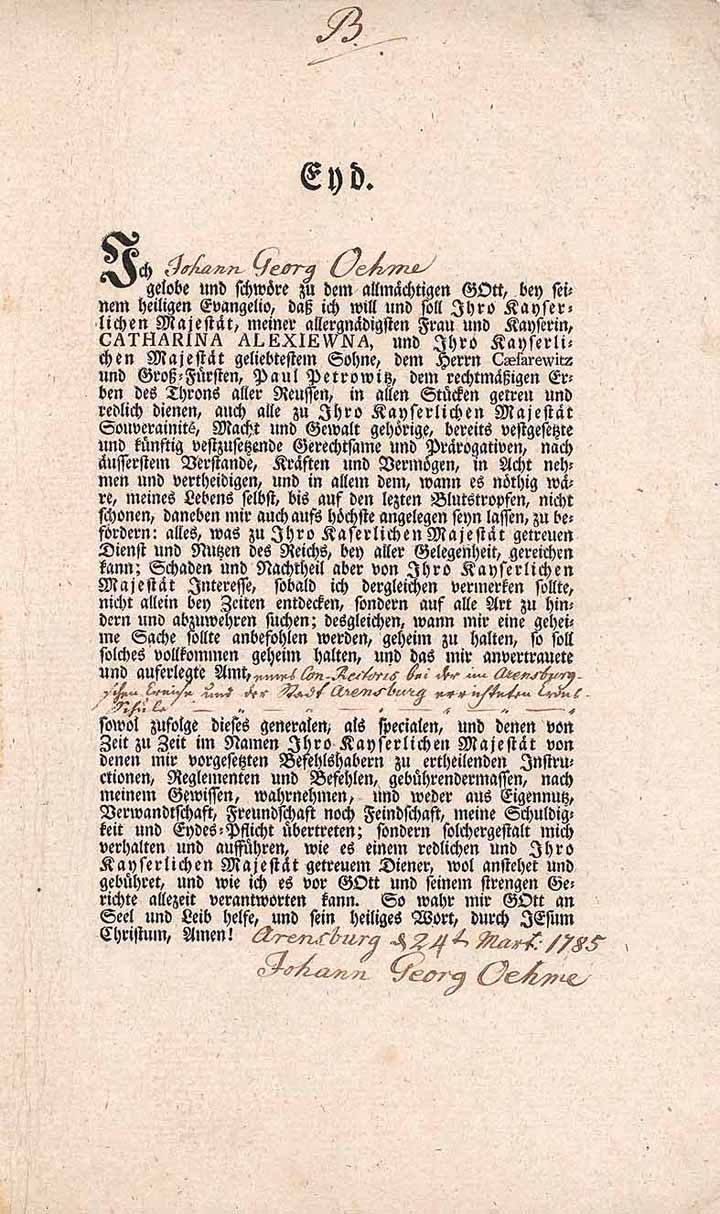 B.
Eyd.
Ich Johann Georg Oehme
gelobe und schwöre zu dem allmächtigen GOtt, bey sei⸗
nem heiligen Evangelio, daß ich will und soll Ihro Kayser⸗
lichen Majestät, meiner allergnädigsten Frau und Kayserin,
CATHARINA ALEXIEWNA, und Ihro Kayserli⸗
chen Majestät geliebtestem Sohne, dem Herrn Cæsarewitz
und Groß⸗Fürsten, Paul Petrowitz, dem rechtmäßigen Er⸗
ben des Throns aller Reussen, in allen Stücken getreu und
redlich dienen, auch alle zu Ihro Kayserlichen Majestät
Souverainité, Macht und Gewalt gehörige, bereits vestgesetzte
und künftig vestzusetzende Gerechtsame und Prärogativen, nach
äusserstem Verstande, Kräften und Vermögen, in Acht neh⸗
men und vertheidigen, und in allem dem, wann es nöthig wä⸗
re, meines Lebens selbst, bis auf den lezten Blutstropfen, nicht
schonen, daneben mir auch aufs höchste angelegen seyn lassen, zu be⸗
fördern: alles, was zu Ihro Kaserlichen Majestät getreuen
Dienst und Nutzen des Reichs, bey aller Gelegenheit, gereichen
kann; Schaden und Nachtheil aber von Ihro Kayserlichen
Majestät Interesse, sobald ich dergleichen vermerken sollte,
nicht allein bey Zeiten entdecken, sondern auf alle Art zu hin⸗
dern und abzuwehren suchen; desgleichen, wann mir eine gehei⸗
me Sache sollte anbefohlen werden, geheim zu halten, so soll
solches vollkommen geheim halten, und das mir anvertrauete
und auferlegte Amt, eines Con-Rectoris bei der im Arensburg-
schen Creise und der Stadt Arensburg errichteten
Schule
sowol zufolge dieses generalen, als specialen, und denen von
Zeit zu Zeit im Namen Ihro Kayserlichen Majestät von
denen mir vorgesetzten Befehlshabern zu ertheilenden Instru⸗
ctionen, Reglementen und Befehlen, gebührendermassen, nach
meinem Gewissen, wahrnehmen, und weder aus Eigennutz,
Verwandtschaft, Freundschaft noch Feindschaft, meine Schuldig⸗
keit und Eydes⸗Pflicht übertreten; sondern solchergestalt mich
verhalten und aufführen, wie es einem redlichen und Ihro
Kayserlichen Majestät getreuem Diener, wol anstehet und
gebühret, und wie ich es vor GOtt und seinem strengen Ge⸗
richte allezeit verantworten kann. So wahr mir GOtt an
Seel und Leib helfe, und sein heiliges Wort, durch JEsum
Christum, Amen! Arensburg d 24t Mart: 1785
Johann Georg Oehme